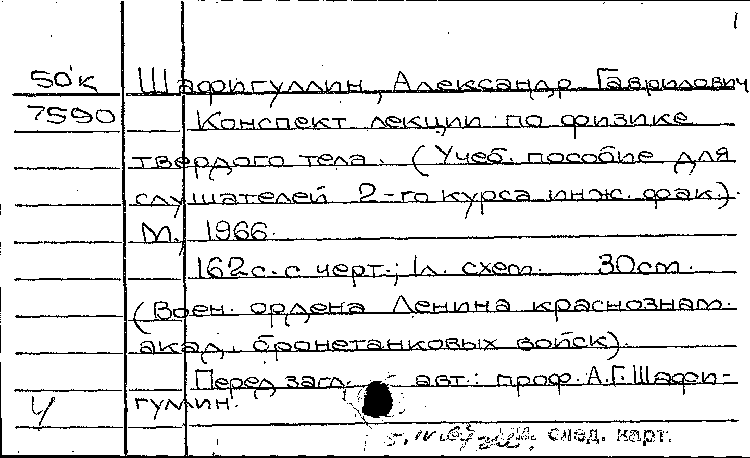 1
50к Шафигуллин, Александр Гаврилович
7590 Конспект лекции по физике
твердого тела. (Учеб. пособие для
слушателей 2-го курса инж. фак.).
М., 1966.
162с. с черт.; 1л. схем. 30см.
(Воен. ордена Ленина краснознам.
акад. бронетанковых войск).
Перед загл. авт.: проф. А.Г. Шафи-
У гуллин.
след. карт.